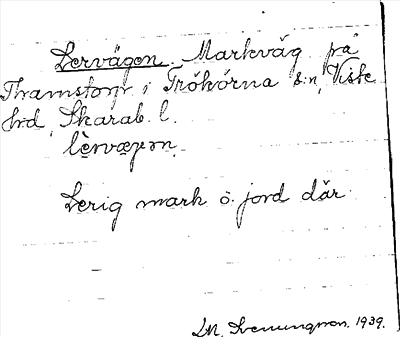 Lervägen. Markväg på
Thamstorp i Trökörna s:n, Viste
hrd, Skarab. l.
lèrvægən.
Lerig mark o. jord där.
1939.